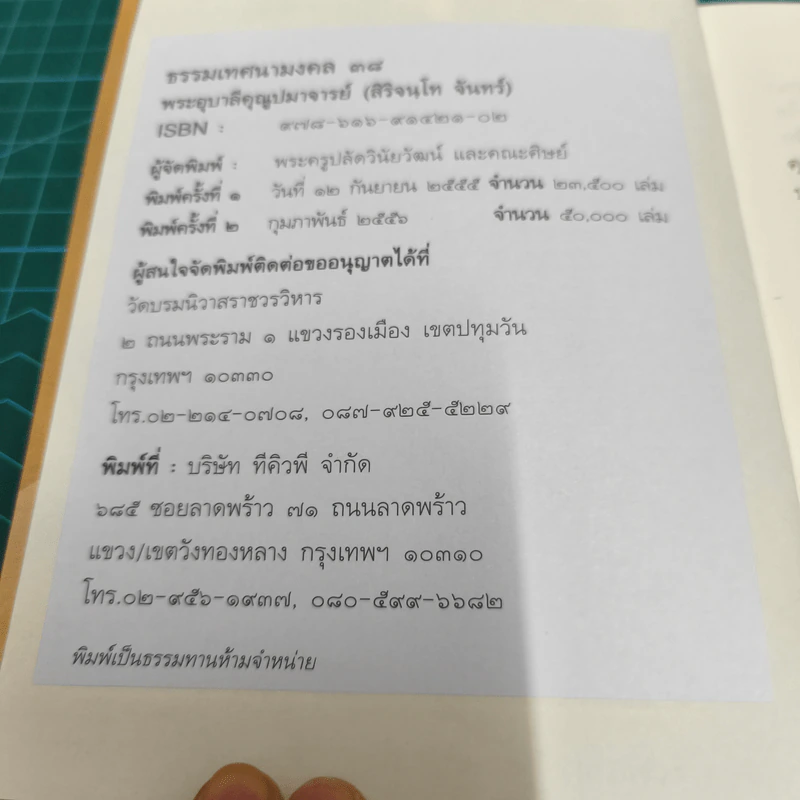 ธรรมเทศนามงคล ๓๘
พระอุบาลีคุณูปมาจารย์ (สิริจนฺโท จันทร์)
ISBN : ๙๗๘-๖๑๖-๙๑๔๒๑-๐๒
ผู้จัดพิมพ์ : พระครูปลัดวินัยวัฒน์ และคณะศิษย์
พิมพ์ครั้งที่ ๑ วันที่ ๑๒ กันยายน ๒๕๕๕ จำนวน ๒๓,๕๐๐ เล่ม
พิมพ์ครั้งที่ ๒ กุมภาพันธ์ ๒๕๕๖ จำนวน ๕๐,๐๐๐ เล่ม
ผู้สนใจจัดพิมพ์ติดต่อขออนุญาตได้ที่
วัดบรมนิวาสราชวรวิหาร
๒ ถนนพระราม ๑ แขวงรองเมือง เขตปทุมวัน
กรุงเทพฯ ๑๐๓๓๐
โทร.๐๒-๒๑๔-๐๗๐๘, ๐๘๗-๙๒๕-๕๒๒๙
พิมพ์ที่ : บริษัท ทีคิวพี จำกัด
๖๘๕ ซอยลาดพร้าว ๗๑ ถนนลาดพร้าว
แขวง/เขตวังทองหลาง กรุงเทพฯ ๑๐๓๑๐
โทร.๐๒-๙๕๖-๑๙๓๗, ๐๘๐-๕๙๙-๖๖๘๒
พิมพ์เป็นธรรมทานห้ามจำหน่าย